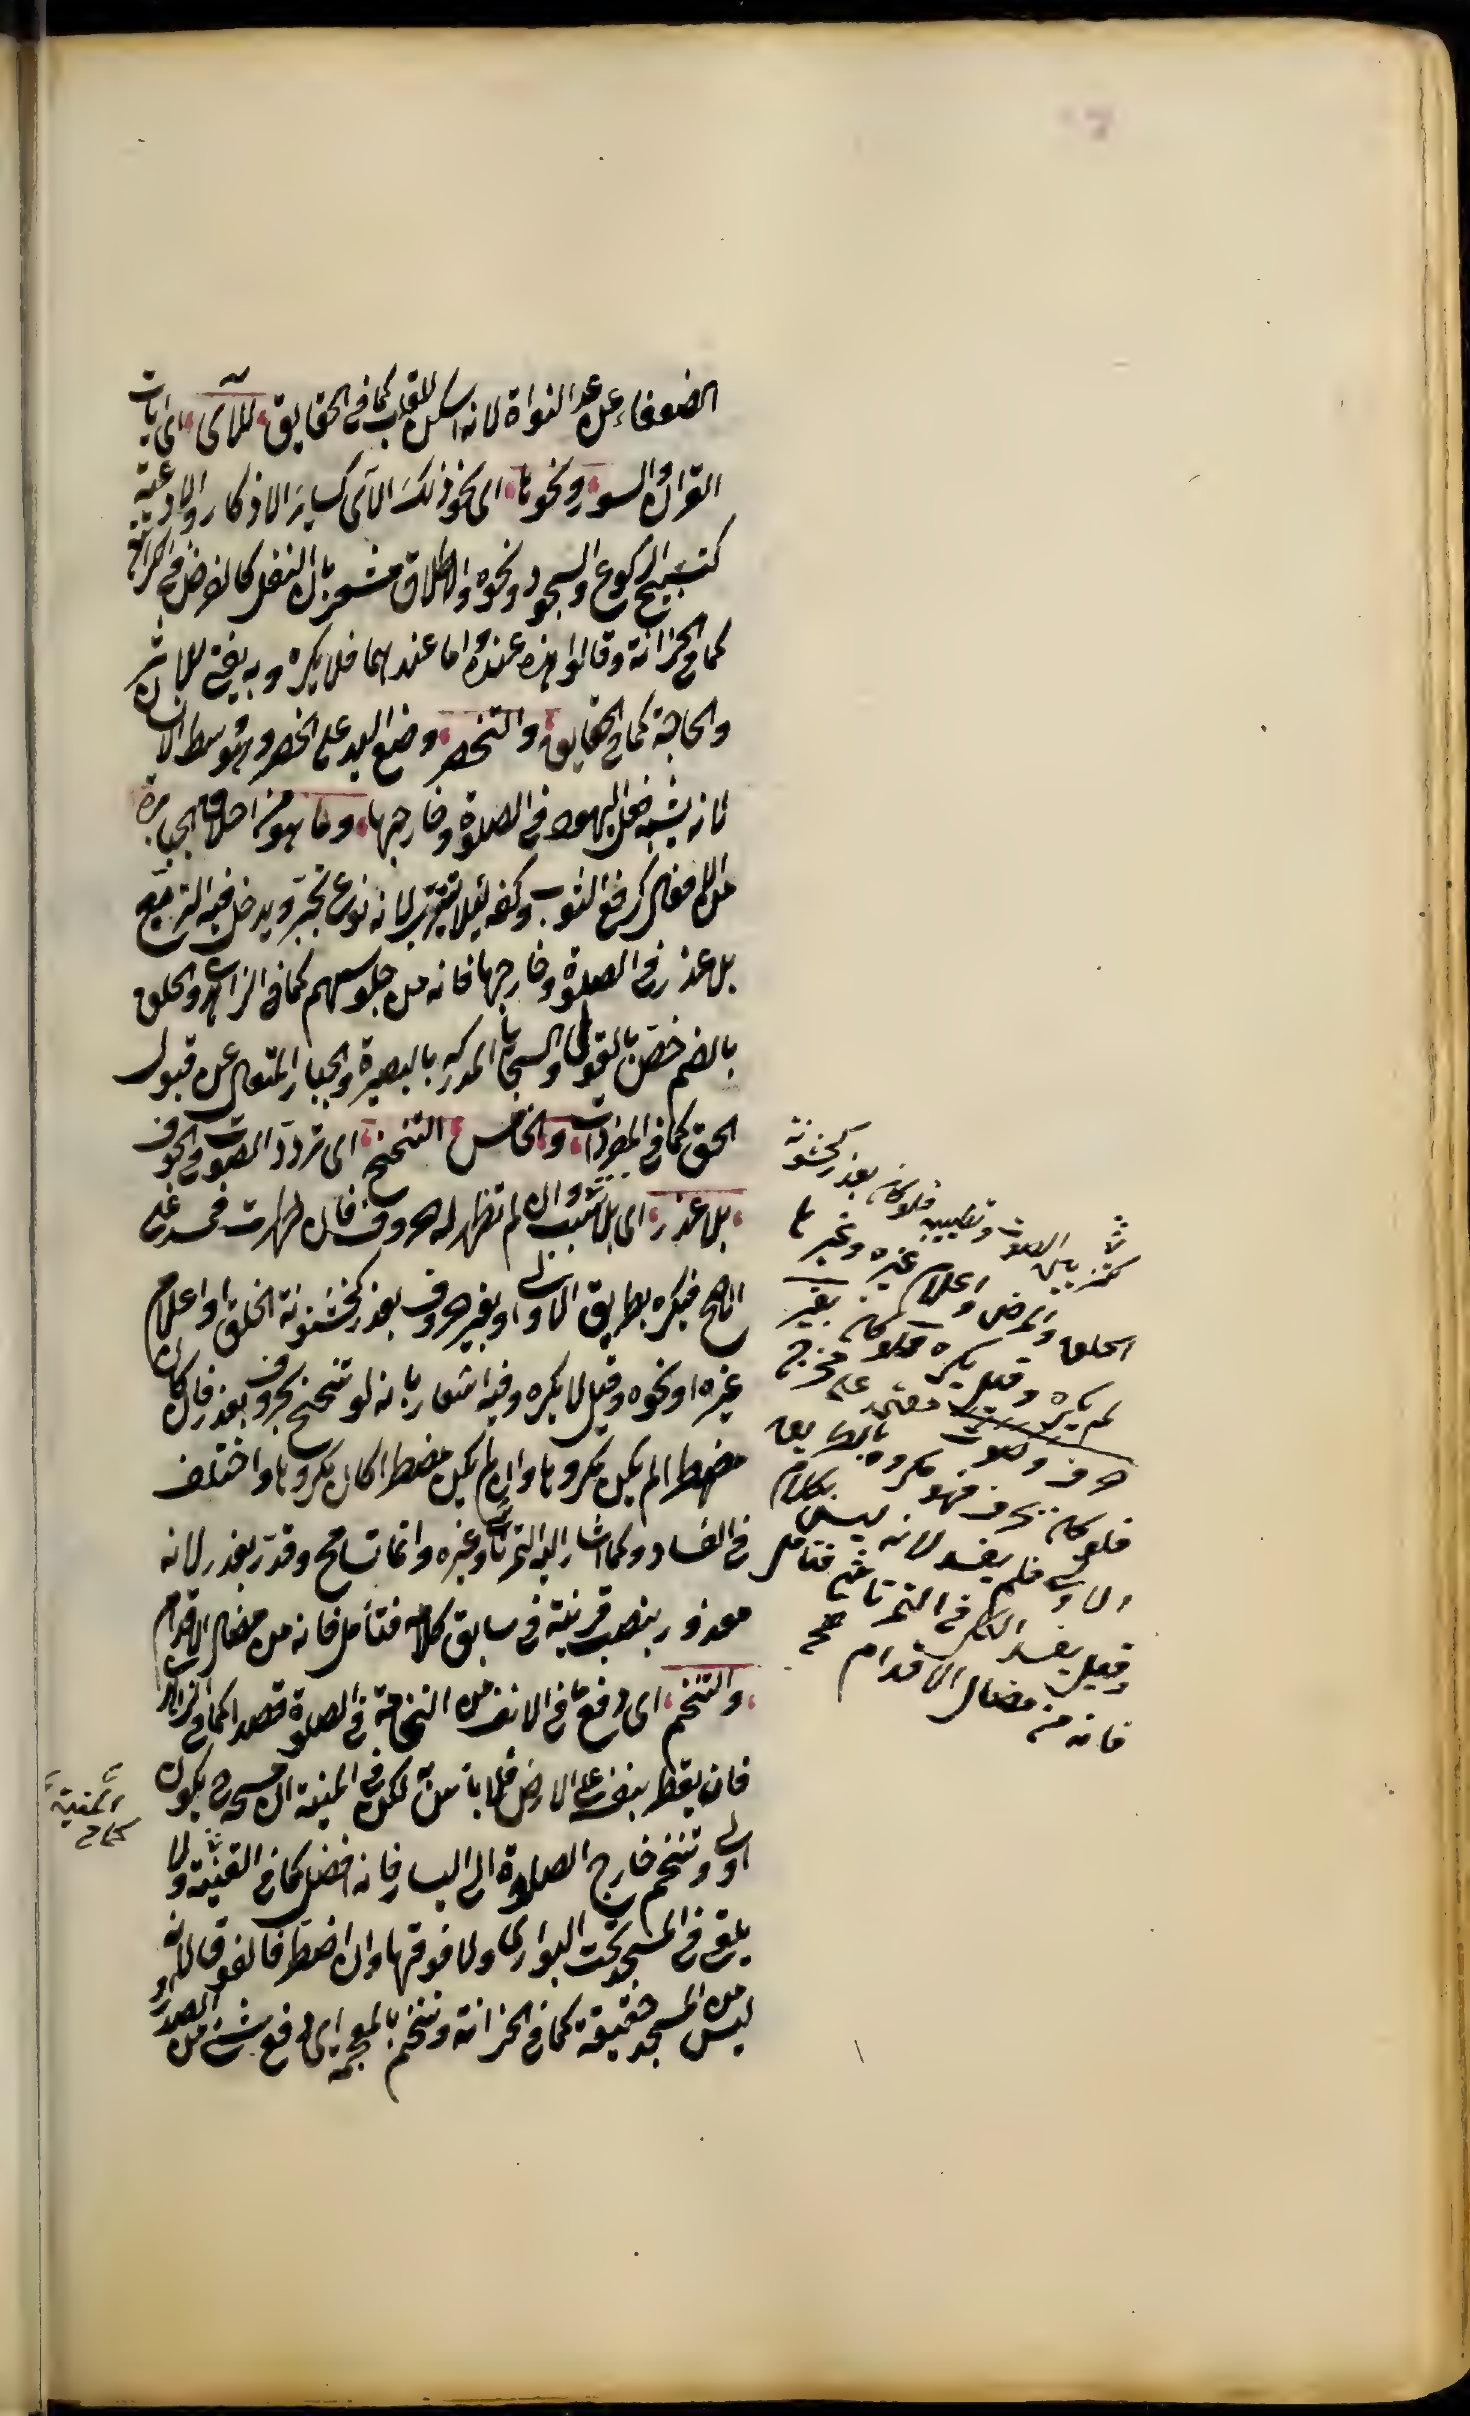 الضعفاء عن عد النواة لانه اسكن للقلب كما في الحقايق للآى اى ايات
القران والسور ونحوها اى نحو ذلك الآى كساير الاذكار والادعية
كتسبيح الركوع والسجود ونحوه والاطلاق مشعر بان النفل كالفرض في الكراهة
كما في الخزانة وقالوا هذه عنده واما عندهما فلا يكره وبه يفتى للاثر
والحاجة كما في الحقايق والتخصر وضع اليد على الخصر وهو وسط الانسان
لانه يشبه فعل اليهود في الصلوة وخارجها وما هو من اخلاق الجبابرة
من الافعال كرفع الثوب وكفه لئلا يتترب لانه نوع تجبر ويدخل فيه التربيع
بلا عذر في الصلوة وخارجها فانه من جلوسهم كما في الزاهدى والخلق
بالضم خص بالقوى والسجايا المدركه بالبصيرة والجبار المتعالى عن قبول
الحق كما في المفردات والخامس التنحنح اى تردد الصوت في الجوف
بلا عذر اى بلا سبب وان لم تظهر له حروف فان ظهرت فسد على
الاصح فيكره بطريق الاولى او بغير حروف بعذر كخشونة الحلق او اعلام
غيره او نحوه وقيل لا يكره وفيه اشعار بانه لو تنحنح بحروف بعذر فان كان
مضطرا لم يكن مكروها وان لم يكن مضطرا كان مكروها واختلف
في الفساد وكما اشار اليه التمرتاشى وغيره وانما تسامح وقدر بعذر لانه
معذور بنصب قرينة في سابق كلامه فتأمل فانه من مضال الاقدام
والتنخم اى دفع في الانف من النخامة في الصلوة قصدا كما في الزاهدى
فان يقط بنفسه على الارض فلا باس به لكن في المنية ان مسحه يكون
اولى وتنخم خارج الصلاوة الى اليسار فانه افضل كما في القنية ولا
يلقى في المسجد تحت البوارى ولا فوقها وان اضطر فالفوق لانه
ليس من المسجد حقيقة كما في الخزانة وتنخم بالمعجمه اى دفع شئ من الصدر
كتزيين الصوت وتطييبه فلو كان بعذر كخشونة
الحلق والمرض واعلام غيره وغيرها
لم يكره وقيل يكره فلو كان بغير
حرف وصوت معتمد على مخرج
فلو كان بحرف فهو مكروه بالطريق
الاولى فلم يفسد لانه ليس بكلام
وقيل يفسد الكل في التمرتاشى فتامل
فانه من مضال الاقدام صح
المنية